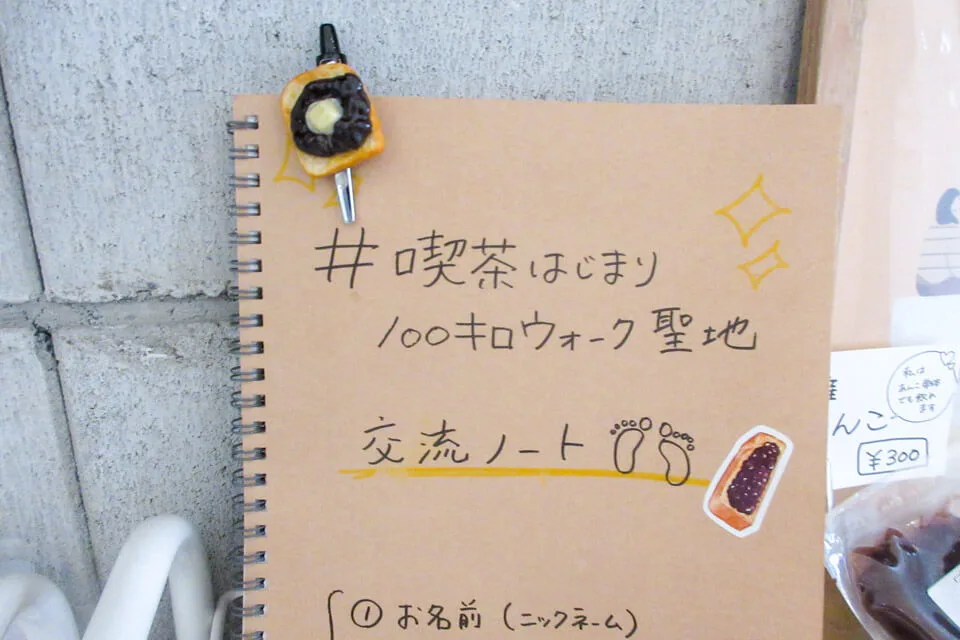 #喫茶はじまり
100キロウォーク聖地
交流ノート
①お名前(ニックネーム)
私は
あんこ単体
でも飲め
ます
んこ
¥300